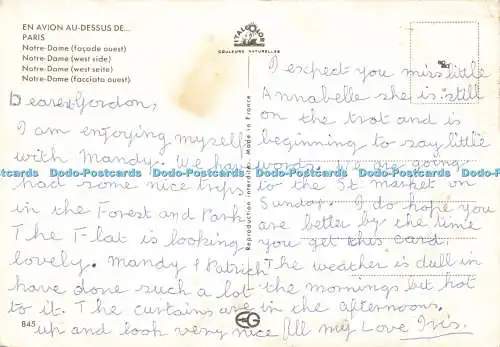 EN AVION AU-DESSUS DE...
PARIS
Notre-Dame (façade ouest)
Notre-Dame (west side)
Notre-Dame (west seite)
Notre-Dame (facciata ouest)
ITALCOLOR
COULEURS NATURELLES
Reproduction interdite. Made in France
Dearest Gordon,
I am enjoying myself
with Mandy. We have
had some nice trips
in the Forest and Park
The Flat is looking
lovely. Mandy & Patrick
have done such a lot
to it. The curtains are
up and look very nice
I expect you miss little
Annabelle she is still
on the trot and is
beginning to say little
words. We are going
to the St. market on
Sunday. I do hope you
are better by the time
you get this card.
The weather is dull in
the mornings but hot
in the afternoons.
All my Love Iris.
845
EG
Dodo-Postcards Dodo-Postcards Dodo-Postcards Dodo-Postcards Dodo-Postcards
Dodo-Postcards Dodo-Postcards Dodo-Postcards Dodo-Postcards Dodo-Postcards